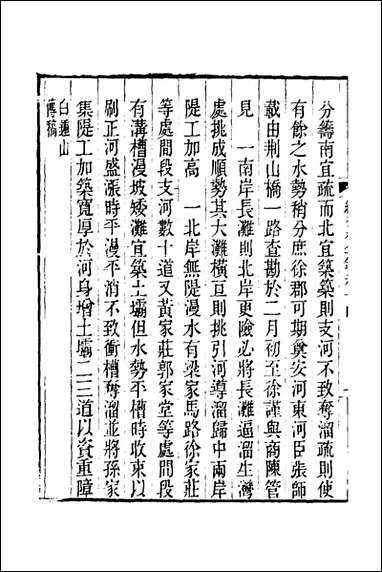 分籌南宜疏而北宜築築則支河不致奪溜疏則使
有餘之水勢稍分庶徐郡可期奠安河東河臣張師
載由荆山橋一路查勘於二月初至徐謹與商陳管
見　一南岸長灘則北岸更險必將長灘逼溜生灣
處挑成順勢其大灘橫亘則挑引河導溜歸中兩岸
隄工加高　一北岸無隄漫水有梁家馬路徐家莊
等處間段支河數十道又黃家莊郭家堂等處間段
有溝槽漫坡矮灘宜築土壩但水勢平槽時收束以
刷正河盛漲時平漫平消不致衝槽奪溜並將孫家
集隄工加築寬厚於河身增土壩二三道以資重障
白蓮山
舊稿